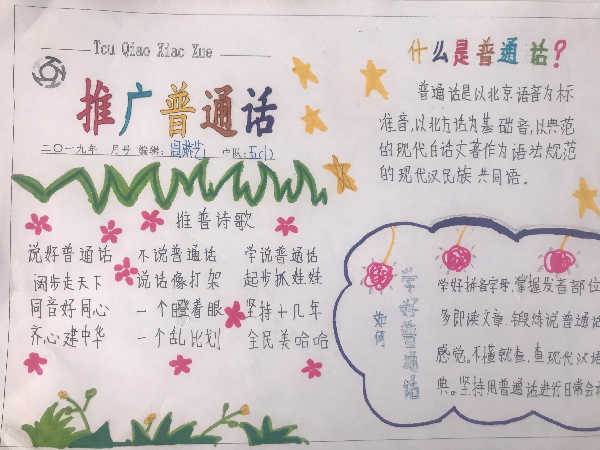 Tou Qiao Xiao Xue
推广普通话
二〇一九年 月号 编辑: 中队: 五(2
推普诗歌
说好普通话 不说普通话 学说普通话
阔步走天下 说话像打架 起步抓娃娃
同音好同心 一个瞪着眼 坚持十几年
齐心建中华 一个乱比划 全民美哈哈
什么是普通话?
普通话是以北京语音为标
准音,以北方话为基础音,以典范
的现代白话文著作为语法规范
的现代汉民族共同语。
如何
学好普通话
学好拼音字母,掌握发音部位
多朗读文章,锻炼说普通话
感觉。不懂就查,查现代汉语
典。坚持用普通话进行日常会